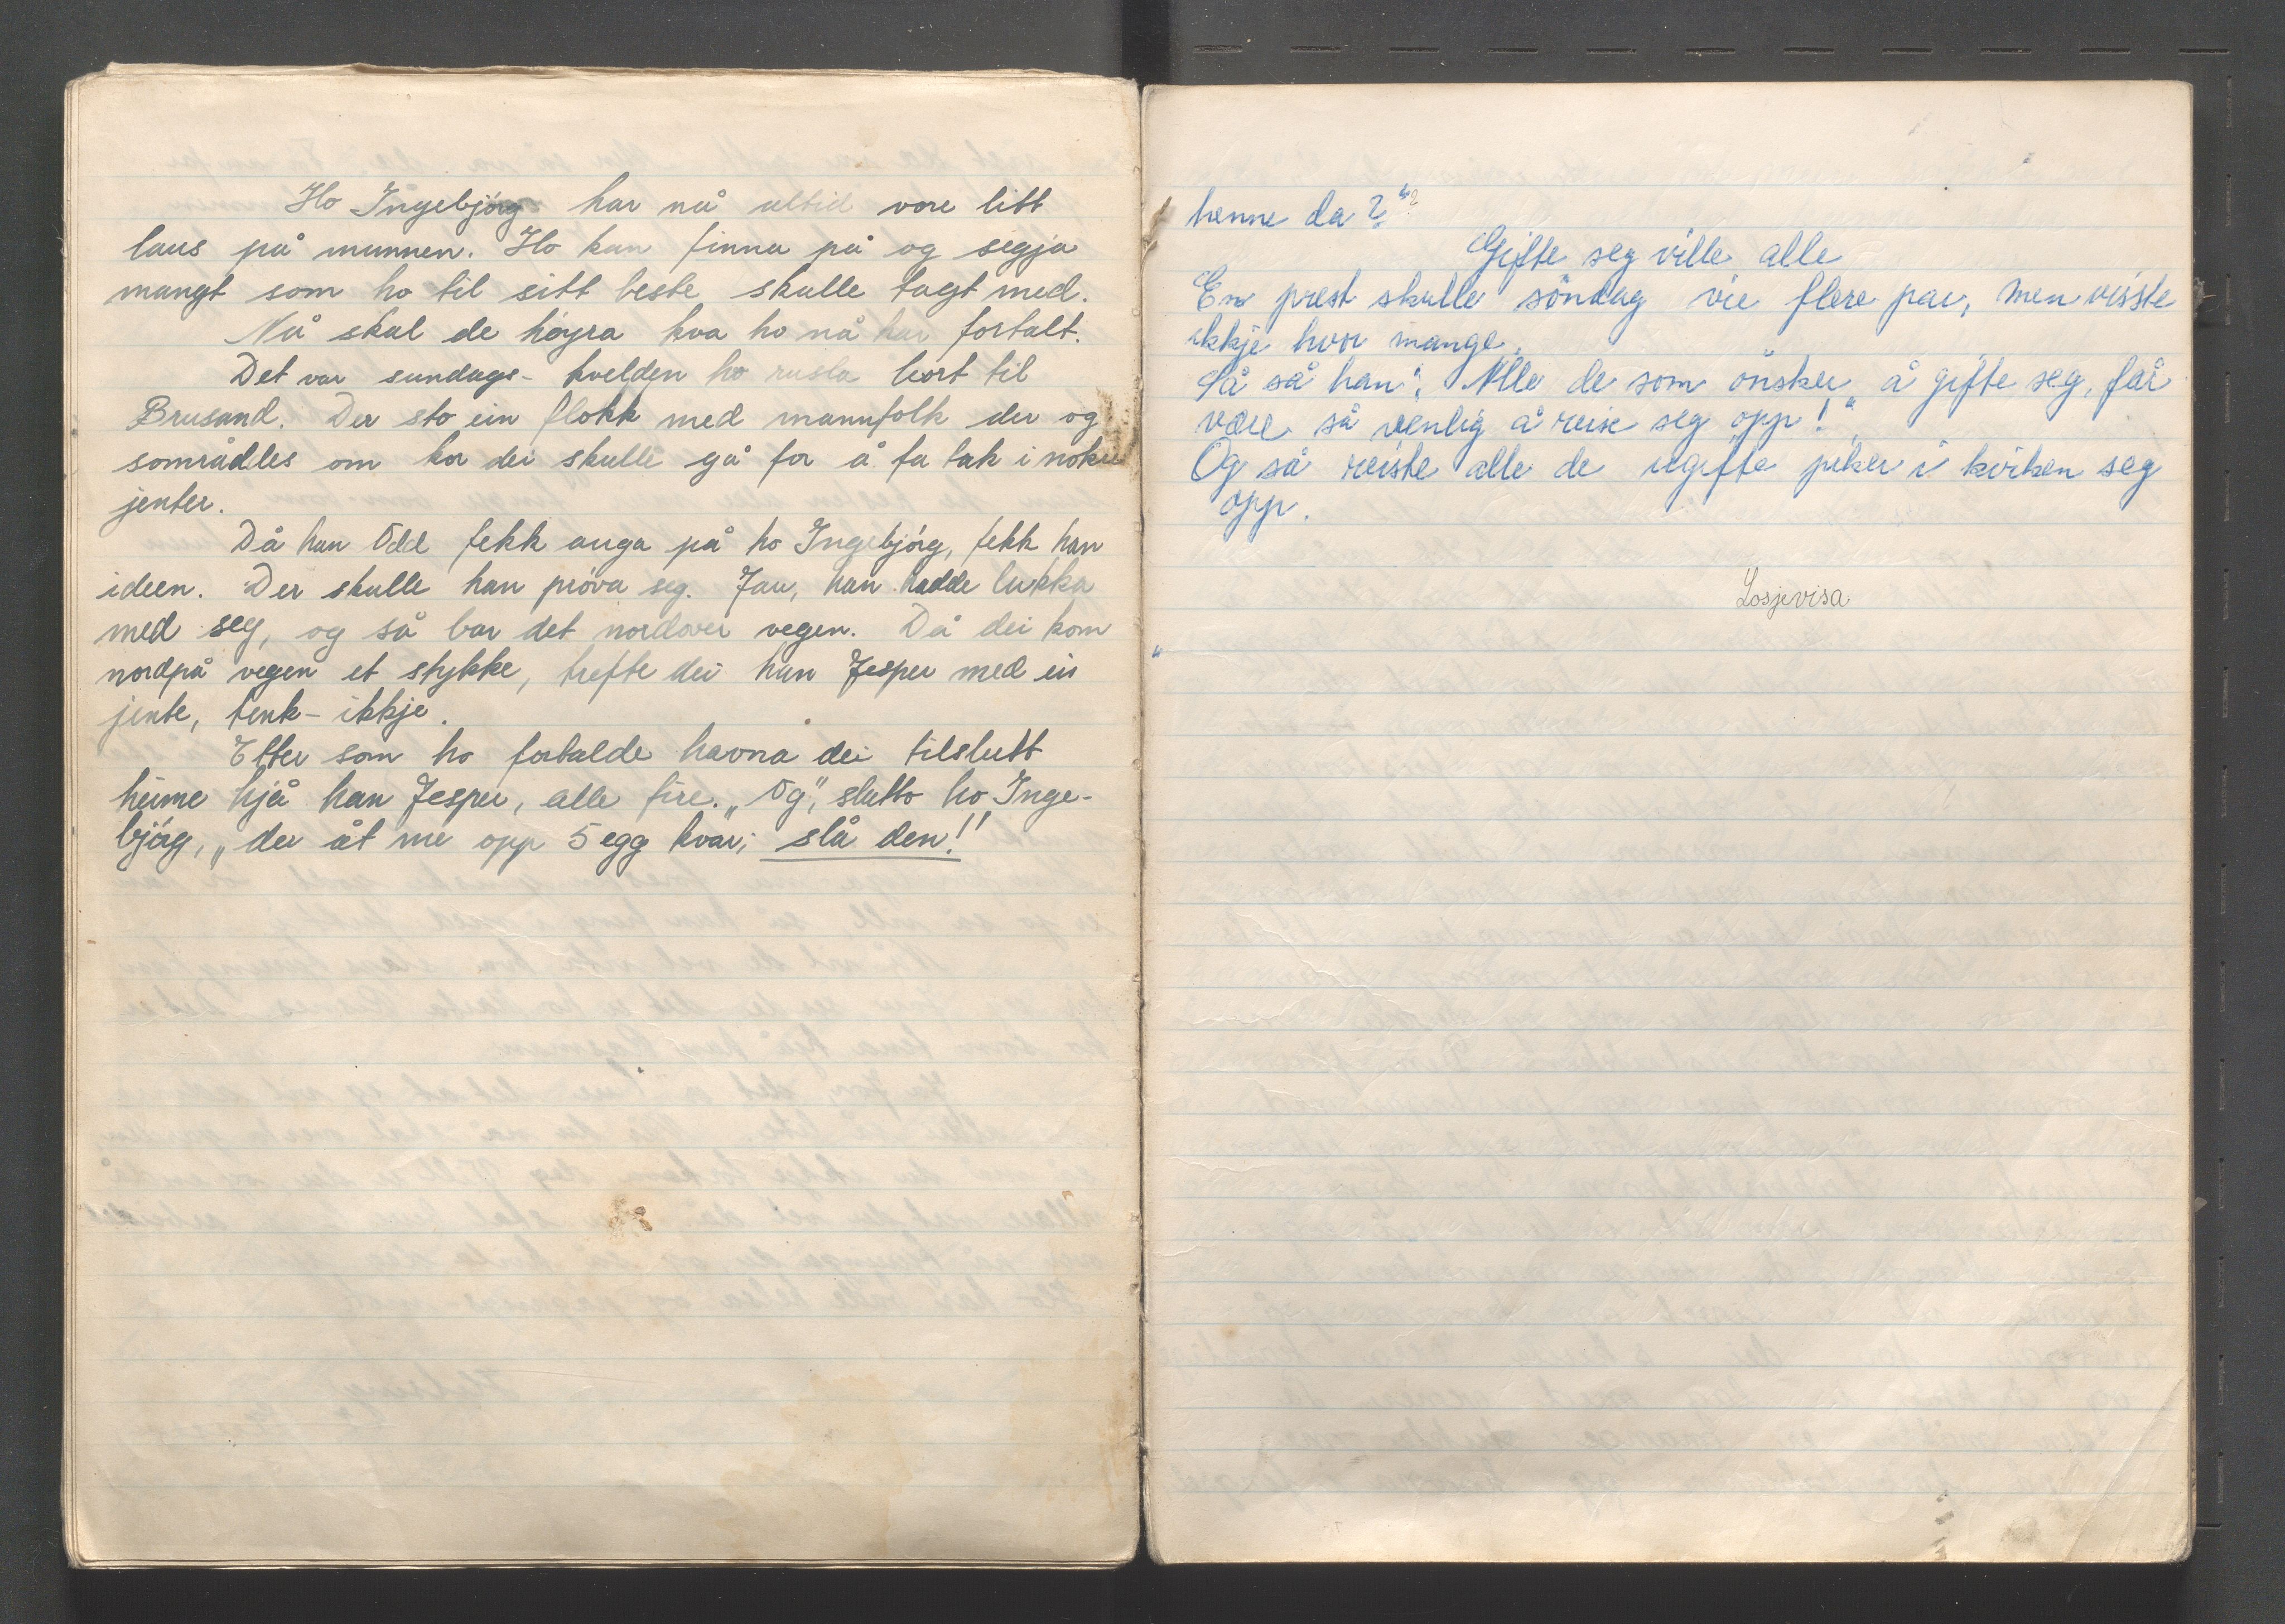 Ho Ingebjörg har nå altid vore litt
laus på munnen. Ho kan finna på og segja
mangt som ho til sitt beste skulle tagt med.
Nå skal de höyra kva ho nå har fortalt.
Det var sundags- kvelden ho rusla bort til
Brusand. Der sto ein flokk med mannfolk der og
sområdles om kor dei skulle gå for å fa tak i noke
jenter.
Då han Odd fekk auga på ho Ingebjörg, fekk han
ideen. Der skulle han pröva seg. Jau, han hadde lukka
med seg, og så bar det nordover vegen. Då dei kom
nordpå vegen et stykke, trefte dei han Jesper med ei
jente, tenk- ikkje.
Etter som ho fortalde havna dei tilslutt
heime hjå han Jesper, alle fire. „Og", slutto ho Inge-
björg, „der åt me opp 5 egg kvar; slå den!"
henne da?"
Gifte seg ville alle
En prest skulle söndag vie flere par, men visste
ikkje hvor mange.
Så sa han: „Alle de som önsker å gifte seg, får
være så venlig å reise seg opp!"
Og så reiste alle de ugifte piker i kirken seg
opp.
Losjevisa
"